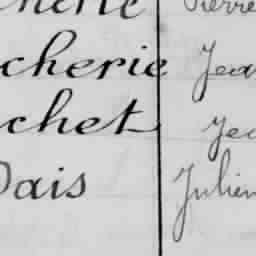 cherie Jea
chet Jea
Dais Julien